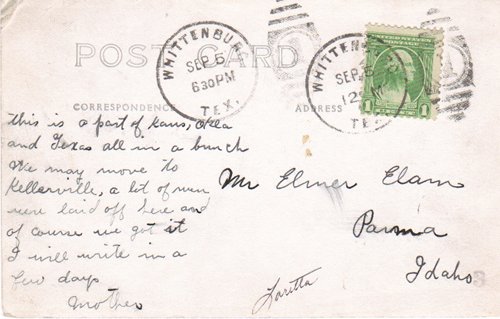 POST CARD
WHITTENBURG
SEP 5
630PM
TEX.
WHITTENBURG
SEP 5
12
TEX.
1 1
CORRESPONDENCE
ADDRESS
this is a part of Kans, Okla
and Texas all in a bunch
We may move to
Kellerville, a lot of men
were laid off here and
of course we got it
I will write in a
few days
Mother
Loretta
Mr Elmer Elam
Parma
Idaho